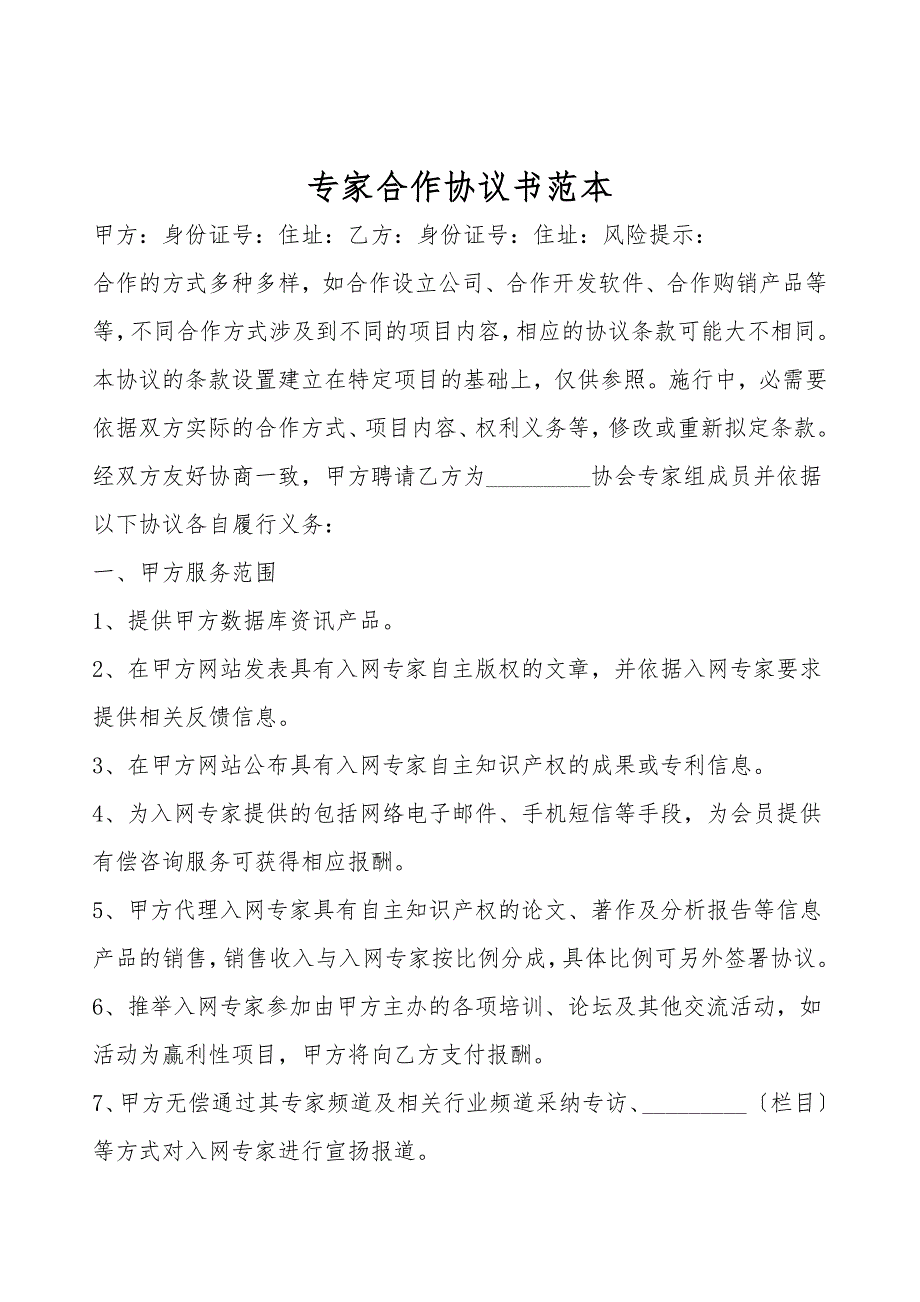 专家合作协议书范本
甲方：身份证号：住址：乙方：身份证号：住址：风险提示：
合作的方式多种多样，如合作设立公司、合作开发软件、合作购销产品等
等，不同合作方式涉及到不同的项目内容，相应的协议条款可能大不相同。
本协议的条款设置建立在特定项目的基础上，仅供参照。施行中，必需要
依据双方实际的合作方式、项目内容、权利义务等，修改或重新拟定条款。
经双方友好协商一致，甲方聘请乙方为_________协会专家组成员并依据
以下协议各自履行义务：
一、甲方服务范围
1、提供甲方数据库资讯产品。
2、在甲方网站发表具有入网专家自主版权的文章，并依据入网专家要求
提供相关反馈信息。
3、在甲方网站公布具有入网专家自主知识产权的成果或专利信息。
4、为入网专家提供的包括网络电子邮件、手机短信等手段，为会员提供
有偿咨询服务可获得相应报酬。
5、甲方代理入网专家具有自主知识产权的论文、著作及分析报告等信息
产品的销售，销售收入与入网专家按比例分成，具体比例可另外签署协议。
6、推举入网专家参加由甲方主办的各项培训、论坛及其他交流活动，如
活动为赢利性项目，甲方将向乙方支付报酬。
7、甲方无偿通过其专家频道及相关行业频道采纳专访、_________〔栏目〕
等方式对入网专家进行宣扬报道。